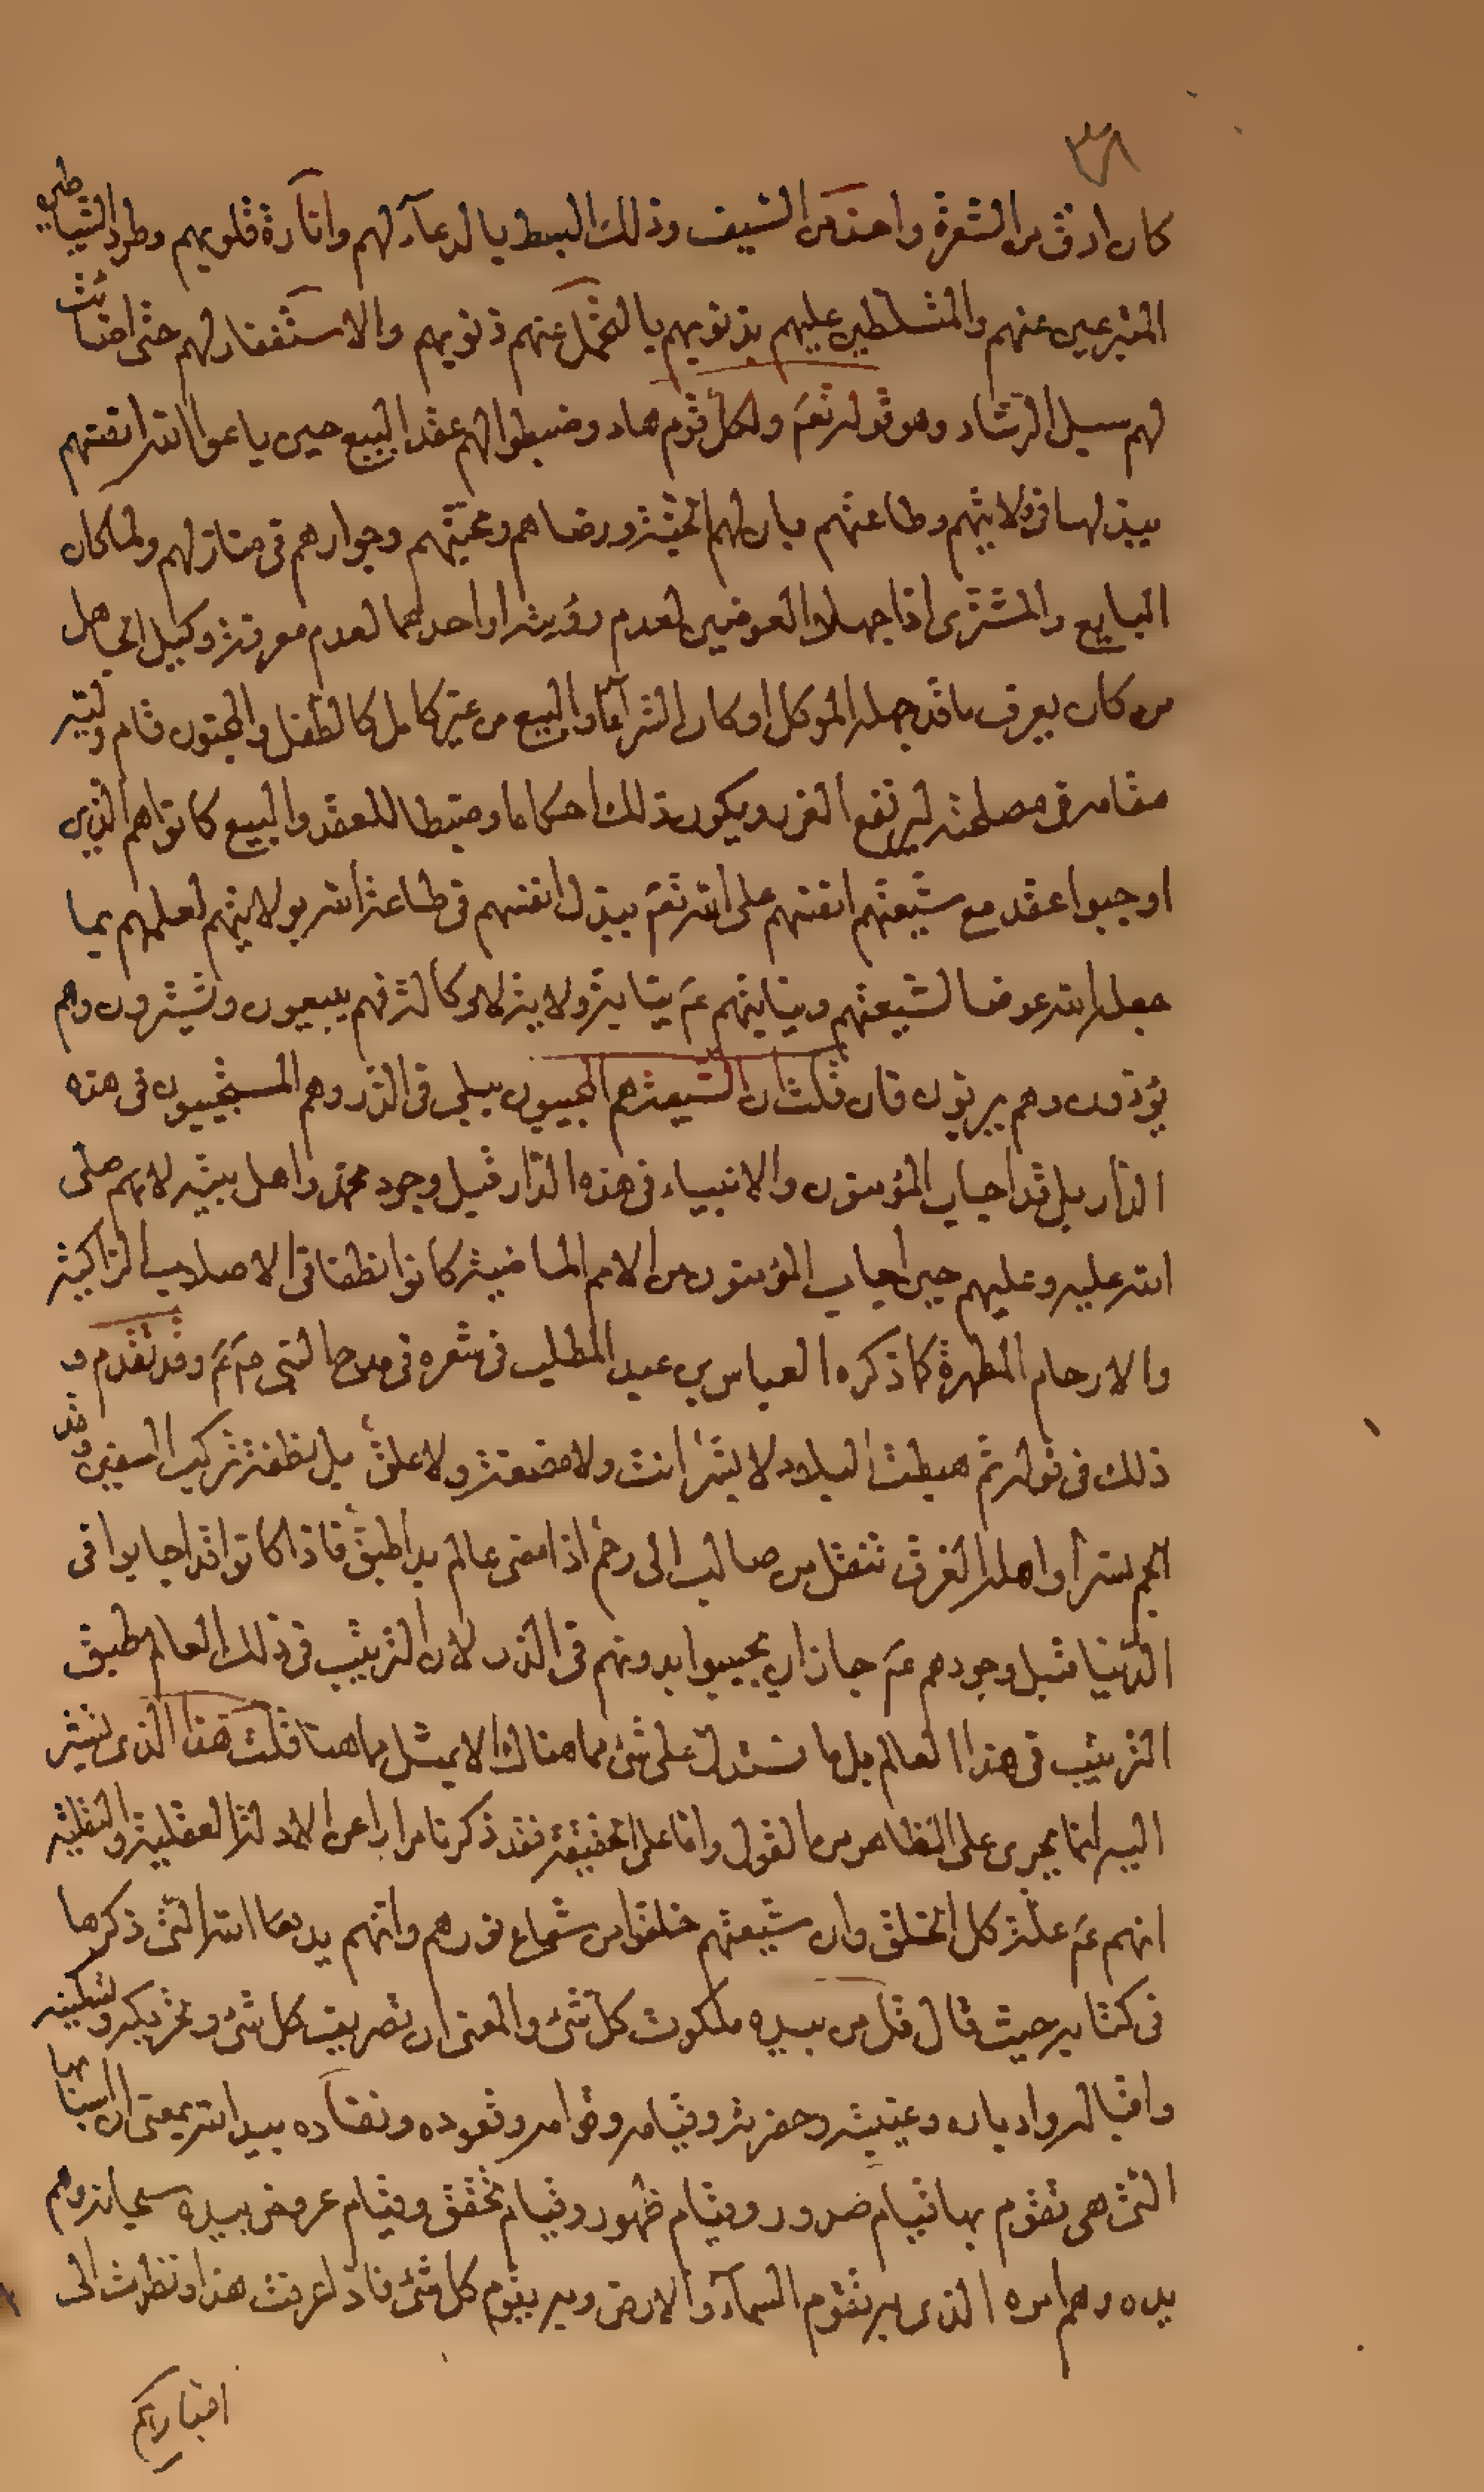 ٣٨
كان ادق من الشعرة واحد من السيف وذلك البسط بالدعآء لهم وانارة قلوبهم وطرد الشياطين
المتبرعين عنهم والمتسلطين عليهم بذنوبهم بالتحمل عنهم ذنوبهم والاستغفار لهم حتى اضائت
لهم سبيل الرشاد وهو قوله تعَ ولكل قوم هاد وضبطوا لهم عقد البيع حين باعوا الله انفسهم
ببذلها فى ولايتهم وطاعتهم بان لهم الجنة ورضاهم ومحبتهم وجوارهم فى منازلهم ولما كان
البايع والمشترى اذا جهلا العوضين لعدم رؤيته او احدهما لعدم معرفته وكيل الجاهل
من كان يعرف ما قد جهله الموكل او كان الشراء او البيع من غير كامل كالطفل والمجنون قام وليه
مقامه فى مصلحته ليرتفع الغرر ويكون ذلك احكاما وضبطا للعقد والبيع كانوا هم الذين
اوجبوا عقد مع شيعتهم انفسهم على الله تعَ ببذل انفسهم فى طاعة الله بولايتهم لعلمهم بما
جعل الله عوضا لشيعتهم وبنيابتهم عَ نيابة ولاية لا وكالة فهم يبيعون ويشترون وهم
يؤدون وهم يربون فان قلت ان الشيعة هم المجيبون ببلى فى الذر وهم المستجيبون فى هذه
الدار بل قد اجاب المؤمنون والانبياء فى هذه الدار قبل وجود محمد واهل بيته لانهم صلى
الله عليه وعليهم حين اجاب المؤمنون من الامم الماضية كانوا نطفا فى الاصلاب الزاكية
والارحام المطهرة كما ذكره العباس بن عبد المطلب فى شعره فى مدح النبى صَ عَ وقد تقدم و
ذلك فى قوله ثم هبطت البلاد لا بشر انت ولا مضغة ولا علق بل نطفة تركب السفين وقد
الجم نسرا واهله الغرق تنقل من صالب الى رحم اذا مضى عالم بدا طبق فاذا كانوا قد اجابوا فى
الدنيا قبل وجودهم عَ جاز ان يجيبوا بدونهم فى الذر لان الترتيب فى ذلك العالم طبق
الترتيب فى هذا العالم بل ما نستدل على شئ مما هناك الا بمثل ما هنا قلت هذا الذى نشير
اليه انما يجرى على الظاهر من القول واما على الحقيقة فقد ذكرنا مرارا عن الادلة العقلية والنقلية
انهم عَ علة كل الخلق وان شيعتهم خلقوا من شعاع نورهم وانهم يد الله التى ذكرها
فى كتابه حيث قال قل من بيده ملكوت كل شئ والمعنى ان تصريف كل شئ وتحريكه وتسكينه
واقباله وادباره وغيبته وحضرته وقيامه وقوامه وقعوده ونفاده بيد الله بمعنى ان اسبابها
التى هى تقوم بها قيام صدور وقيام ظهور وقيام تحقق وقيام عروض بيده سبحانه وهم
يده وهم امره الذى به تقوم السمآء والارض وبه يقوم كل شئ فاذا عرفت هذا ونظرت الى
اخبارهم